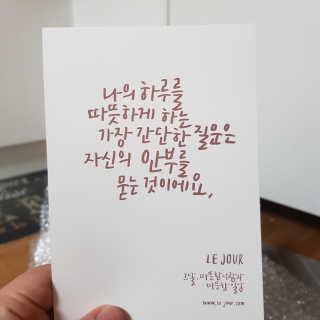 나의 하루를
따뜻하게 하는
가장 간단한 질문은
자신의 안부를
묻는 것이에요,
LE JOUR
그날, 따뜻한 사람과
따뜻한 일상
www.le-jour.com